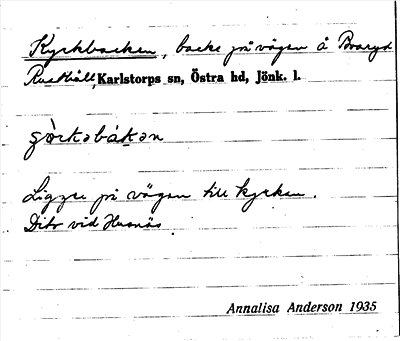 Kyrkbacken, backe på vägen å Boaryd
Karlstorps sn, Östra hd, Jönk. l.
Ligger på vägen till kyrkan.
Dito vid Husnäs
Annalisa Anderson 1935